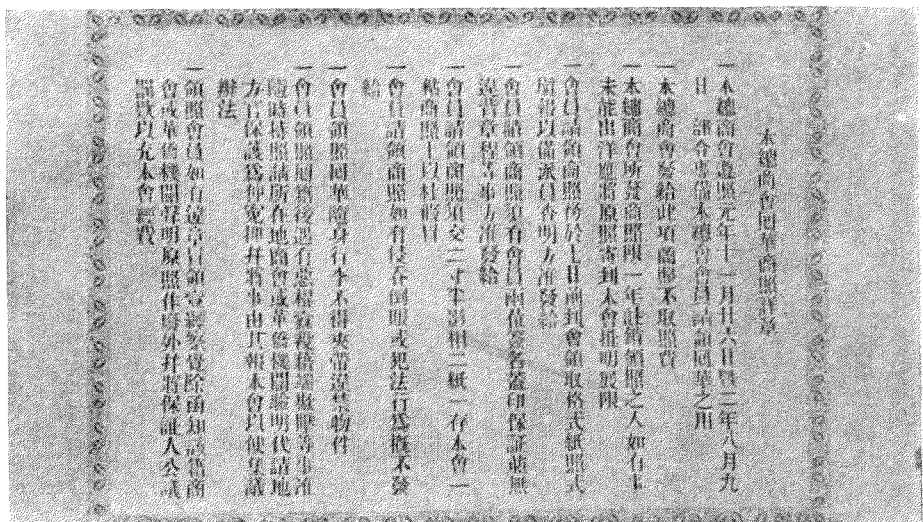 本總商會囘華商照詳章
一本總商會遵照元年十一月廿六日曁二年八月九
日 部令專備本總會會員請領囘華之用
一本總商會發給此項商照不取照費
一本總商會所發商照限一年註銷領照之人如有事
未能出洋應將原照寄到本會批明展限
一會員請領商照務於七日前到會領取格式紙照式
塡報以備派員查明方准發給
一會員請領商照須有會員兩位簽名蓋印保証確無
違背章程等事方准發給
一會員請領商照須交二寸半影相二紙一存本會一
粘商照上以杜假冒
一會員請領商照如有侵吞倒賬或犯法行爲槪不發
給
一會員領照囘華隨身行李不得夾帶違禁物件
一會員領照囘籍後遇有惡棍豪殺藉端欺壓等事准
隨時持照請所在地商會或華僑機關驗明代請地
方官保護爲伸寃抑幷將事由具報本會以便集議
辦法
一領照會員如有違章冒領等經察覺除函知該管商
會或華僑機關聲明原照作廢外幷將保証人公議
罰欵以充本會經費